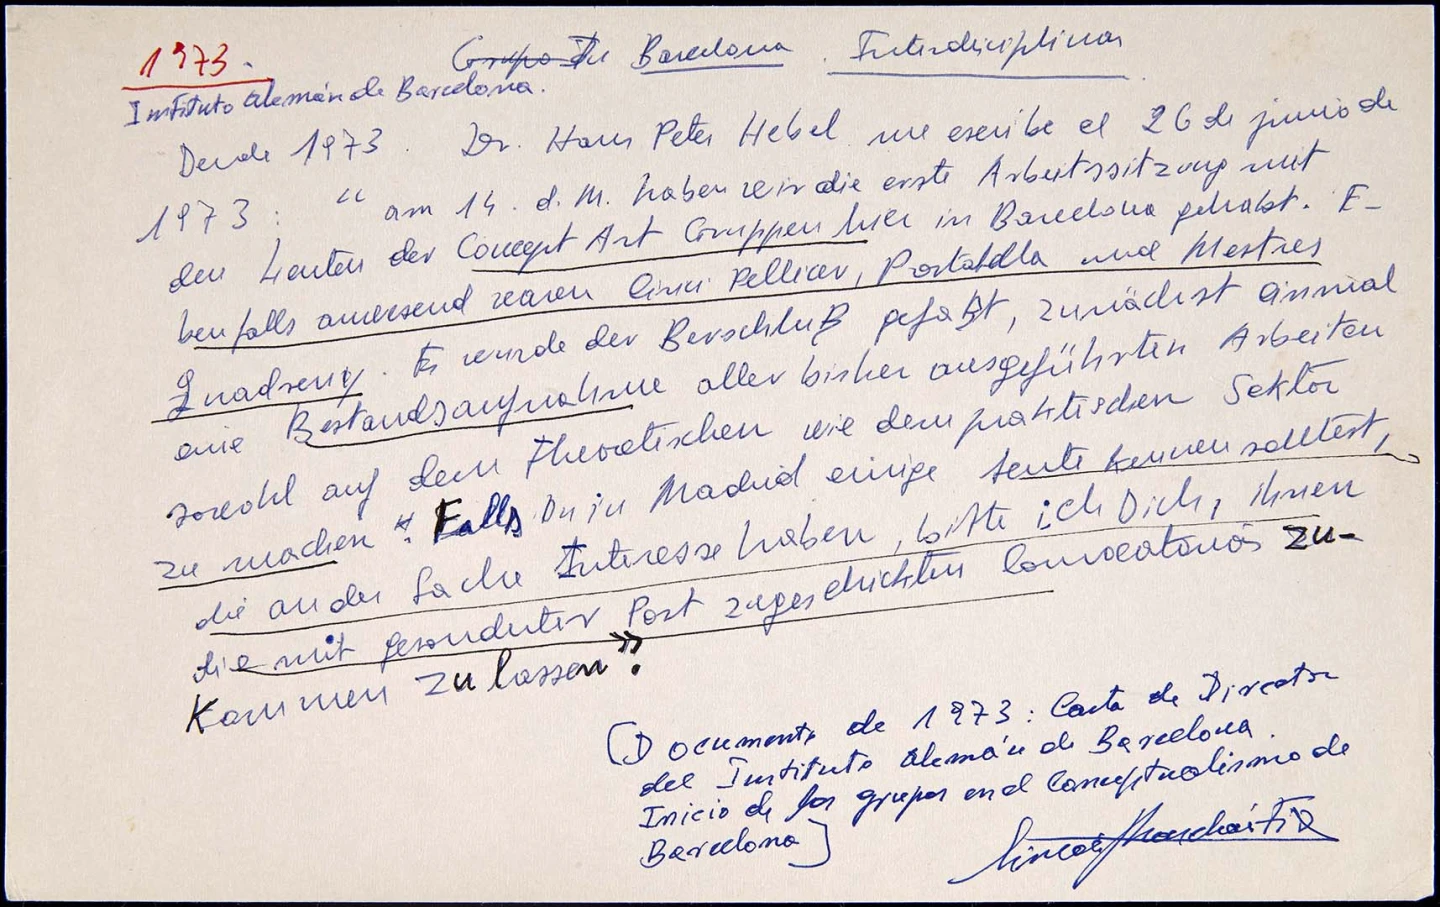 1973.
Grupo De Barcelona Interdisciplinar
Instituto Alemán de Barcelona.
Desde 1973. Dr. Hans Peter Hebel me escribe el 26 de junio de
1973: "am 14. d. M. haben wir die erste Arbeitssitzung mit
den Leuten der Concept Art Gruppen hier in Barcelona gehabt. E-
benfalls anwesend waren Cirici Pellicer, Portabella und Mestres
Quadreny. Es wurde der Beschluß gefaßt, zunächst einmal
eine Bestandsaufnahme aller bisher ausgeführten Arbeiten
sowohl auf dem theoretischen wie dem praktischen Sektor
zu machen". Falls Du in Madrid einige Leute kennen solltest,
die an der Sache Interesse haben, bitte ich Dich, ihnen
die mit gesonderter Post zugeschickten Convocatorias zu-
kommen zu lassen".
(Documento de 1973: Carta de Director
del Instituto Alemán de Barcelona.
Inicio de los grupos en el Conceptualismo de
Barcelona]